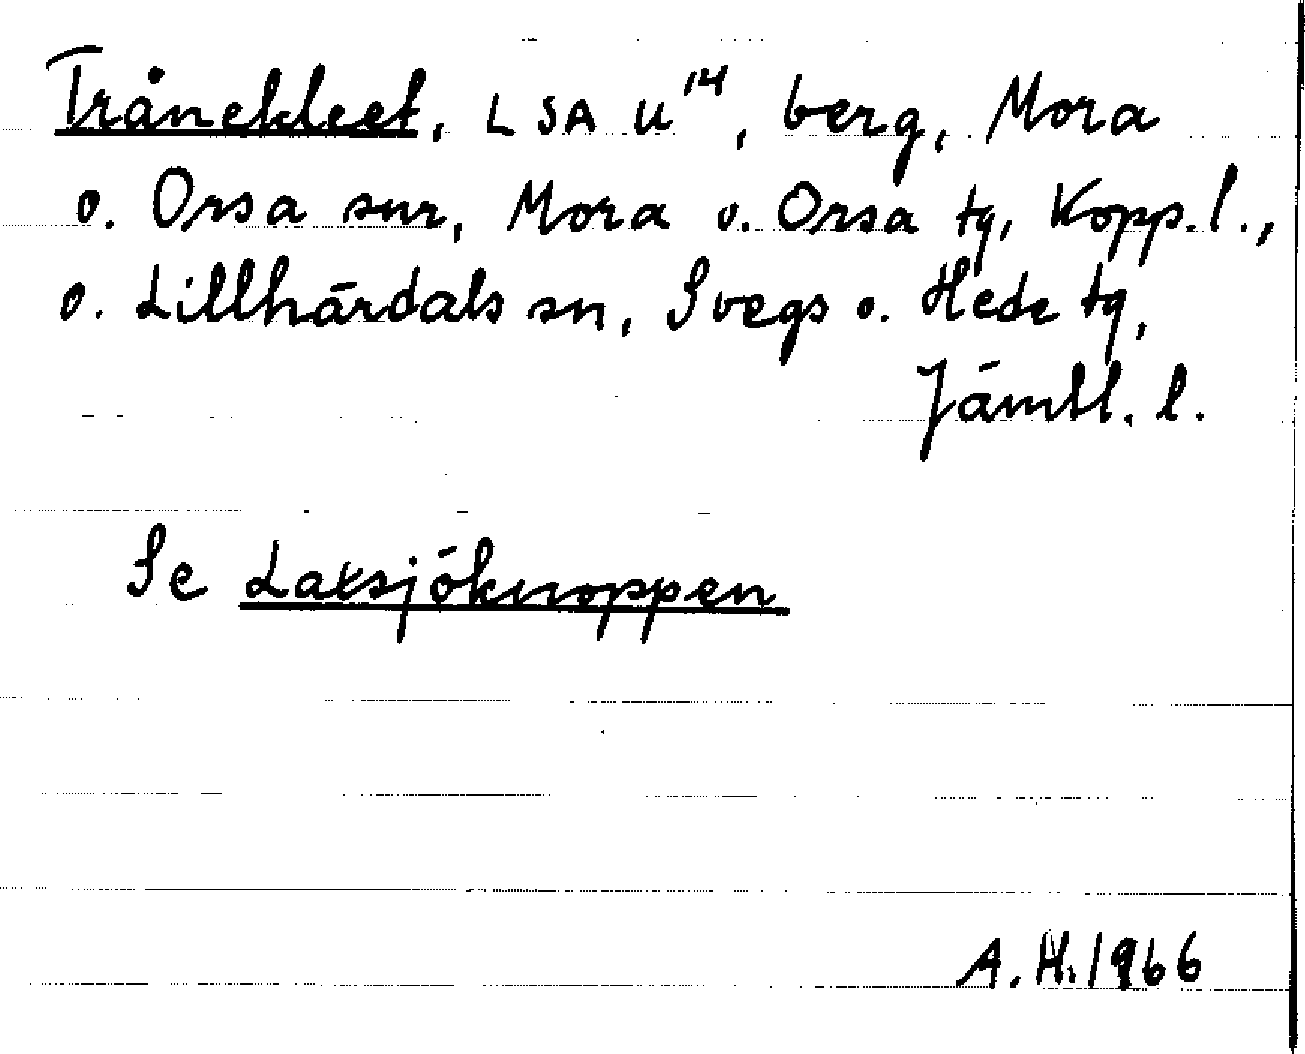 Trånekleet, LSA U¹⁴, berg, Mora
o. Orsa snr, Mora o. Orsa tg, Kopp. l.,
o. Lillhärdals sn, Svegs o. Hede tg,
Jämtl. l.
Se Laxsjöknoppen
A. H. 1966